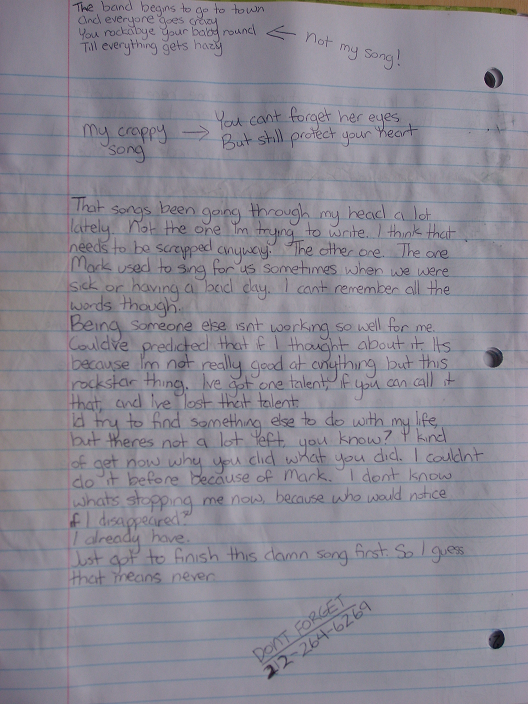 The band begins to go to town
And everyone goes crazy
You rockabye your baby round ← Not my song!
Till everything gets hazy
My crappy song → You cant forget her eyes
But still protect your heart
That songs been going through my head a lot
lately. Not the one I'm trying to write. I think that
needs to be scrapped anyway. The other one. The one
Mark used to sing for us sometimes when we were
sick or having a bad day. I cant remember all the
words though.
Being someone else isnt working so well for me.
Could've predicted that if I thought about it. Its
because I'm not really good at anything but this
rockstar thing. I've got one talent, if you can call it
that, and I've lost that talent.
I'd try to find something else to do with my life,
but theres not a lot left, you know? I kind
of get now why you did what you did. I couldnt
do it before because of Mark. I dont know
whats stopping me now, because who would notice
if I disappeared?
I already have.
Just got to finish this damn song first. So I guess
that means never.
DONT FORGET
212-264-6269